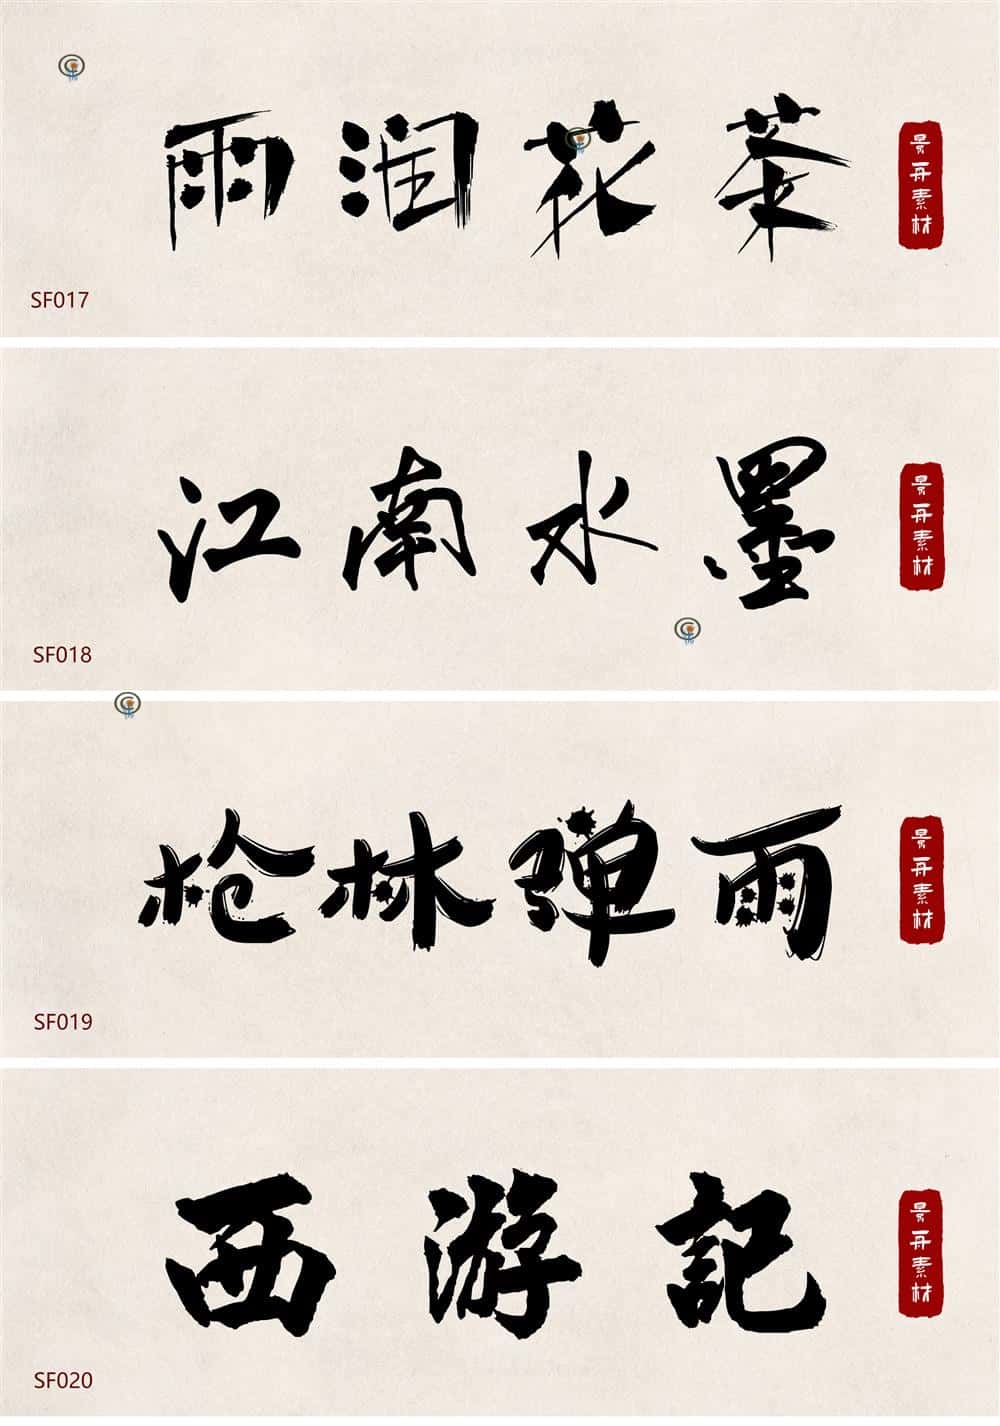 雨润花茶
景舟素材
SF017
江南水墨
景舟素材
SF018
枪林弹雨
景舟素材
SF019
西游記
景舟素材
SF020